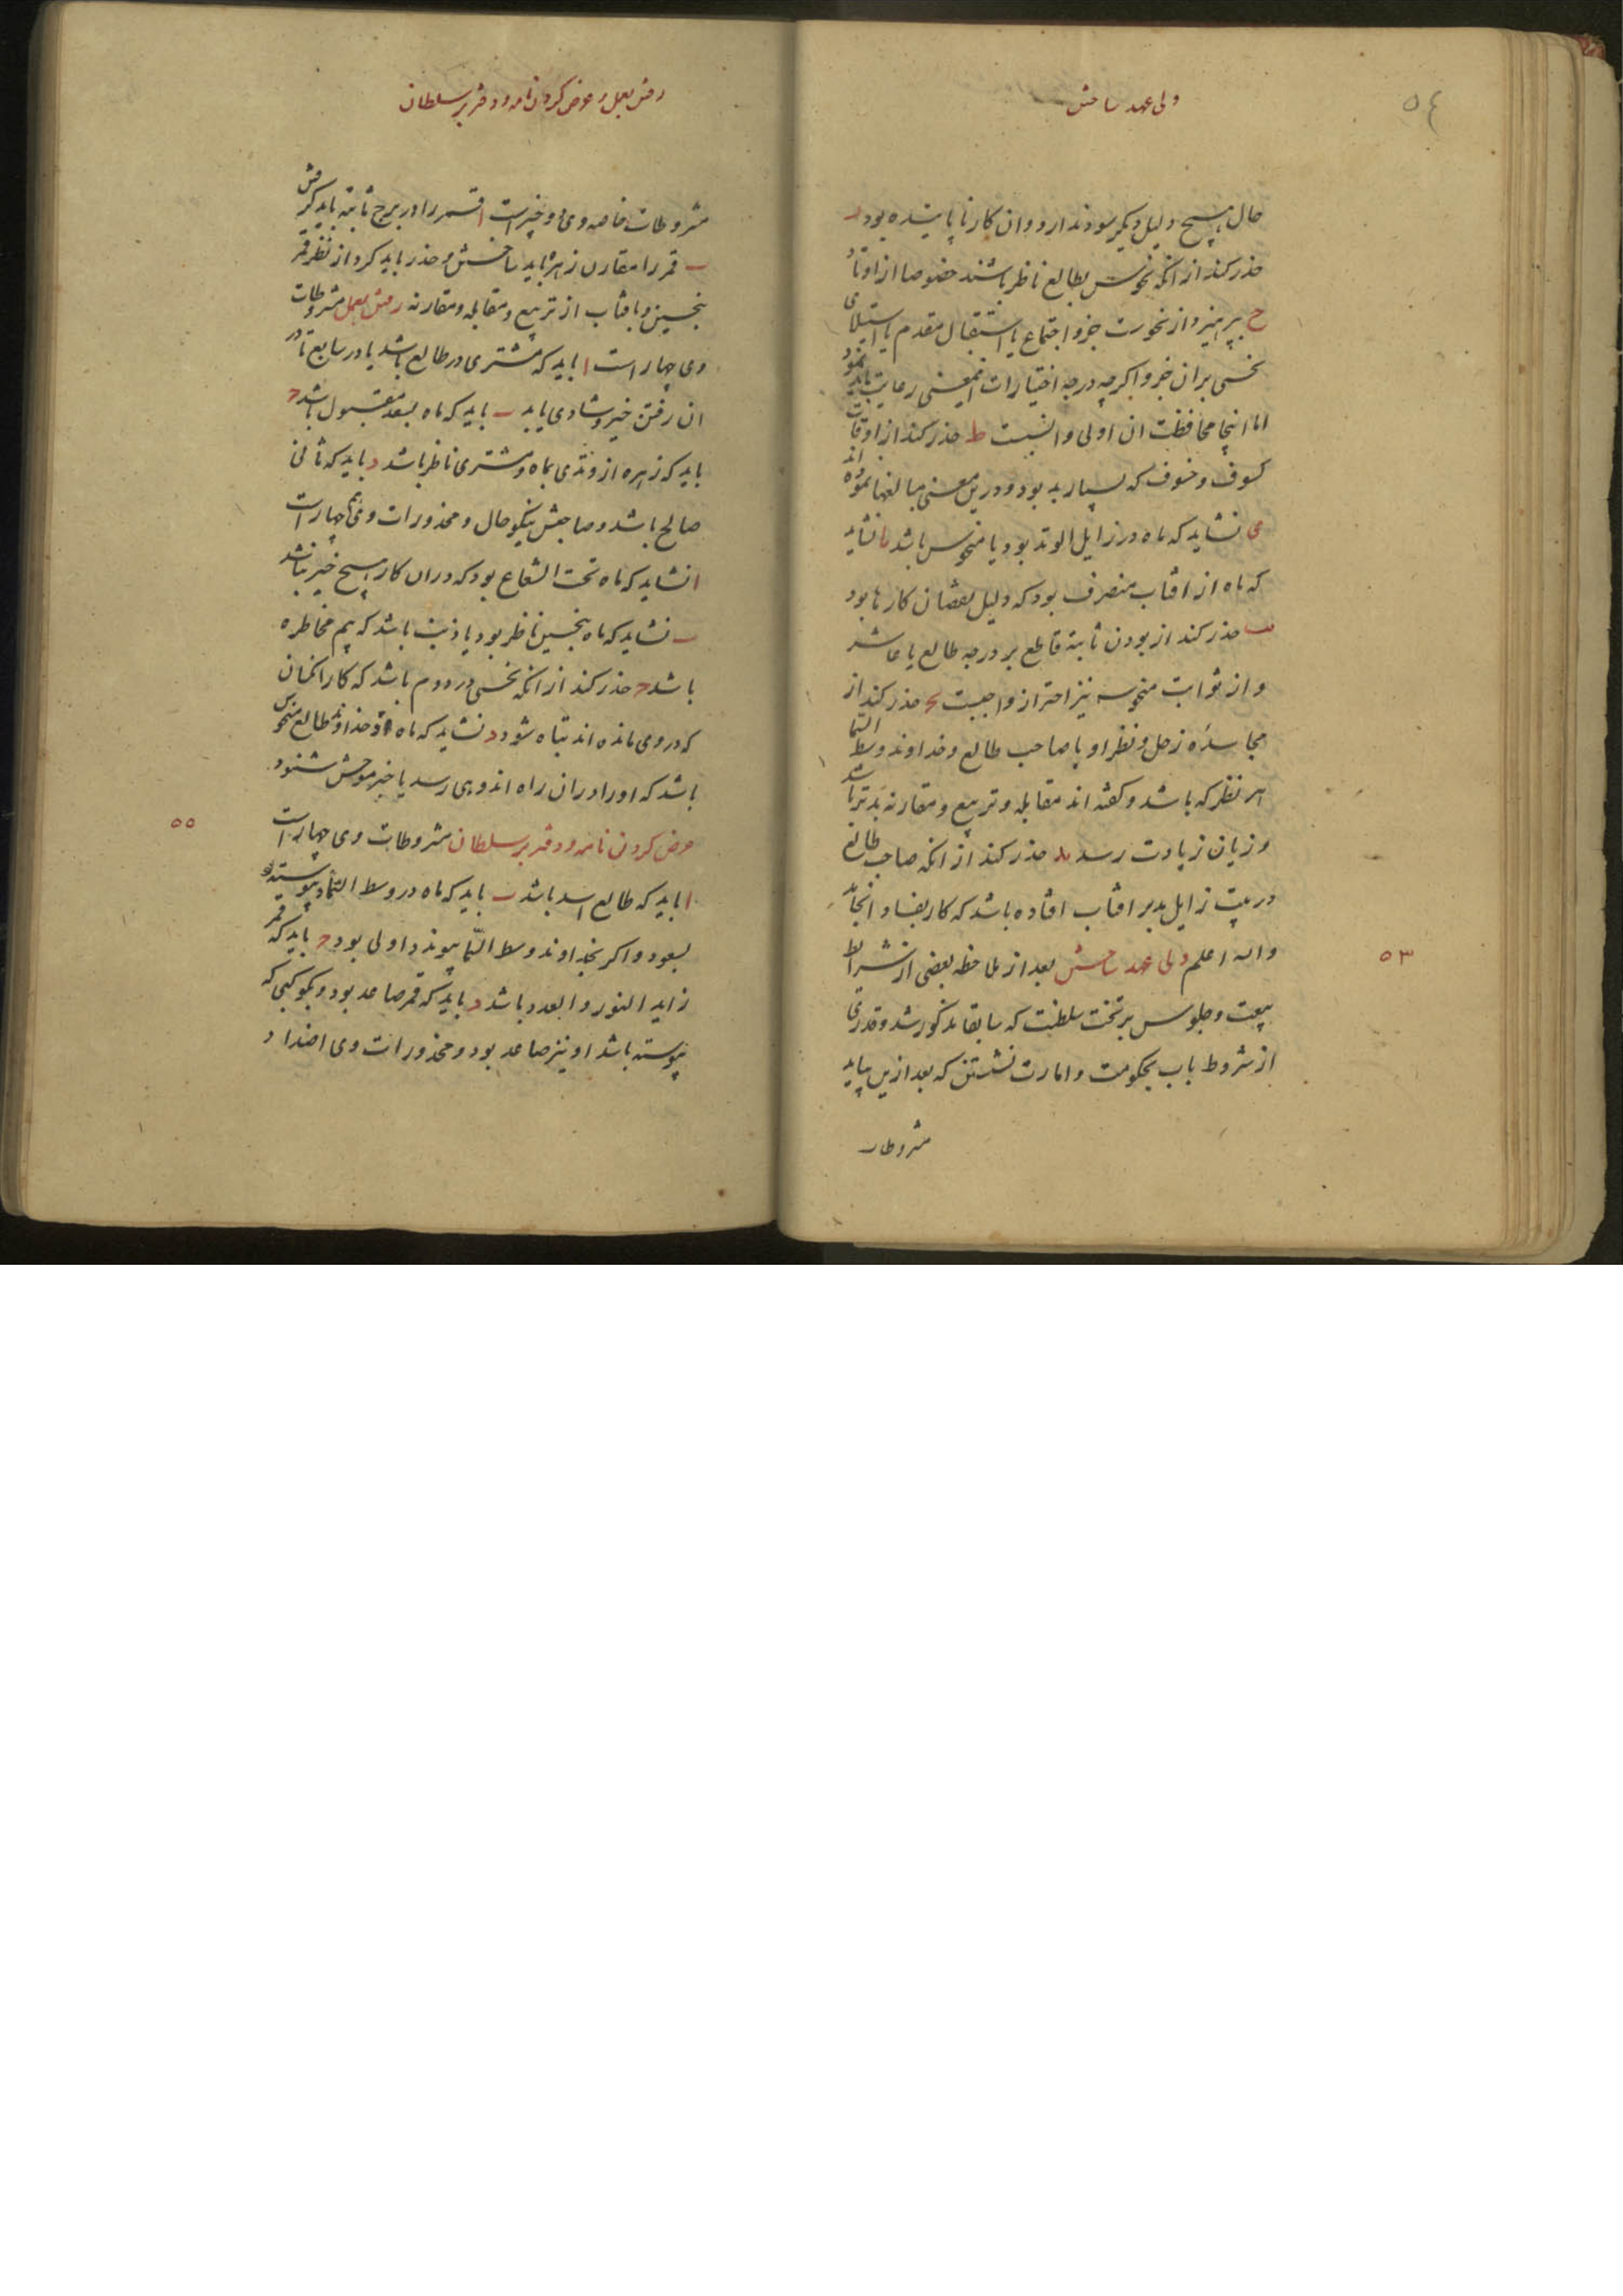 ٥٤
ولی عهد ساختن
حال هیچ دلیل دیکر سود ندارد و ان کار ناپاینده بود ز
حذر کند از انکه نحوس بطالع ناظر باشند خصوصا از اوتاد
ح بپرهیزد از نحوست جزو اجتماع یا استقبال مقدم یا استیلای
نحسی بران جزو اکرچه در جه اختیارات اینمعنی رعایت باید نمود
اما اینجا محافظت ان اولی و انسبست ط حذر کند از اوقات
کسوف و خسوف که بسیار بد بود و درین معنی مبالغها نموده اند
ی نشاید که ماه در زایل الوتد بود یا منحوس باشد یا نشاید
که ماه از افتاب منصرف بود که دلیل نقصان کارها بود
یب حذر کند از بودن ثابته قاطع بر درجه طالع یا عاشر
و از ثوابت منحوسه نیز احتراز واجبست یج حذر کند از
مجاسده زحل و نظر او با صاحب طالع و خداوند وسط السّما
هر نظر که باشد و کفته اند مقابله و تربیع و مقارنه بدتر باشد
و زیان زیادت رسد ید حذر کند از انکه صاحب طالع
در بیت زایل بدبر افتاب افتاده باشد که کار بفساد انجامد
والله اعلم ولی عهد ساختن بعد از ملاحظه بعضی از شرایط
٥٣
بیعت و جلوس بر تخت سلطنت که سابقا مذکور شد و قدری
از شروط باب بحکومت و امارت نشستن که بعد ازین بیاید
مشروطات
رفتن بعمل و عرض کردن نامه و دفتر بر سلطان
مشروطات خاصه وی دو چیزست ا قمر را در برج ثابته باید کرفتن
ب قمر را مقارن زهره باید ساختن و حذر باید کرد از نظر قمر
بنحسین و بافتاب از تربیع و مقابله و مقارنه رفتن بعمل مشروطات
وی چهار است ا باید که مشتری در طالع باشد یا در سابع تا در
ان رفتن خیر و شادی یابد ب باید که ماه بسعد مقبول باشد ج
باید که زهره از وتدی بماه و مشتری ناظر باشد د باید که ثانی
صالح باشد و صاحبش نیکو حال و محذورات وی هم چهار است
ا نشاید که ماه تحت الشعاع بود که دران کار هیچ خیر نباشد
ب نشاید که ماه بنحسین ناظر بود یا ذنب باشد که بیم مخاطره
باشد ج حذر کند از انکه نحسی در دوم باشد که کار انکسان
که در وی مانده اند تباه شود د نشاید که ماه و خداوند طالع منحوس
باشد که او را دران راه اندوهی رسد یا خبر موحش شنود
عرض کردن نامه و دفتر بر سلطان مشروطات وی چهار است
٥٥
ا باید که طالع اسد باشد ب باید که ماه در وسط السّما و پیوسته بود
بسعود و اکر بخداوند وسط السّما پیوندد اولی بود ج باید که قمر
زاید النور و العدد باشد د باید که قمر صاعد بود و بکوکبی که
پیوسته باشد او نیز صاعد بود و محذورات وی اضداد